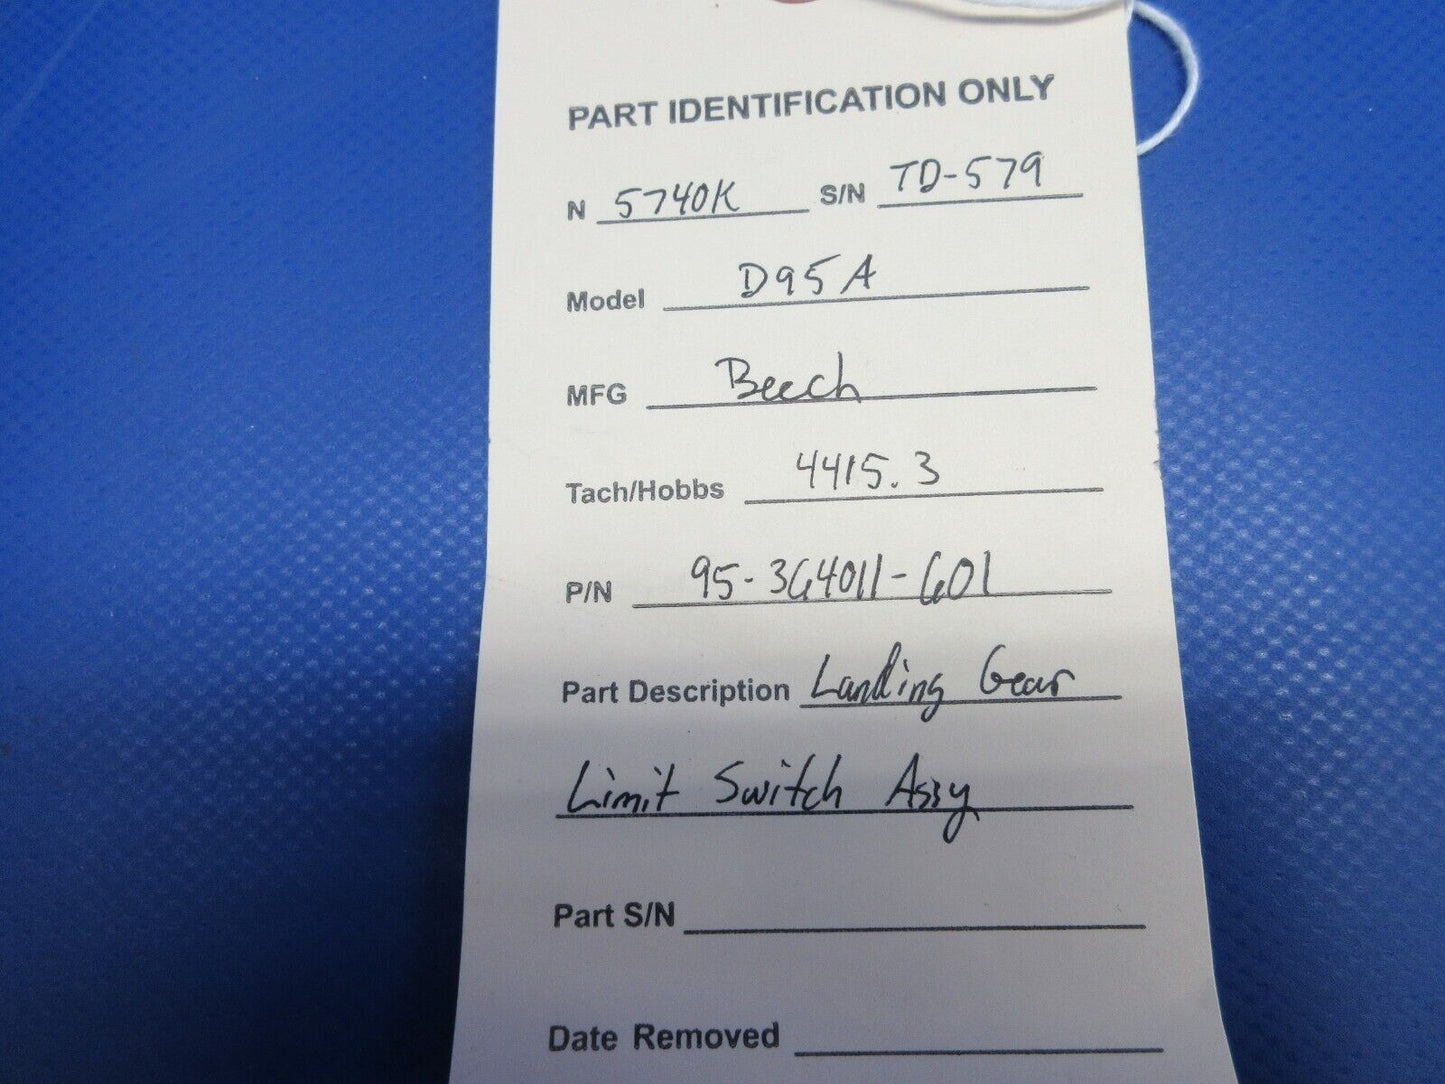 PART IDENTIFICATION ONLY
N 5740K S/N TD-579
Model D95A
MFG Beech
Tach/Hobbs 4415.3
P/N 95-364011-601
Part Description Landing Gear
Limit Switch Assy
Part S/N
Date Removed